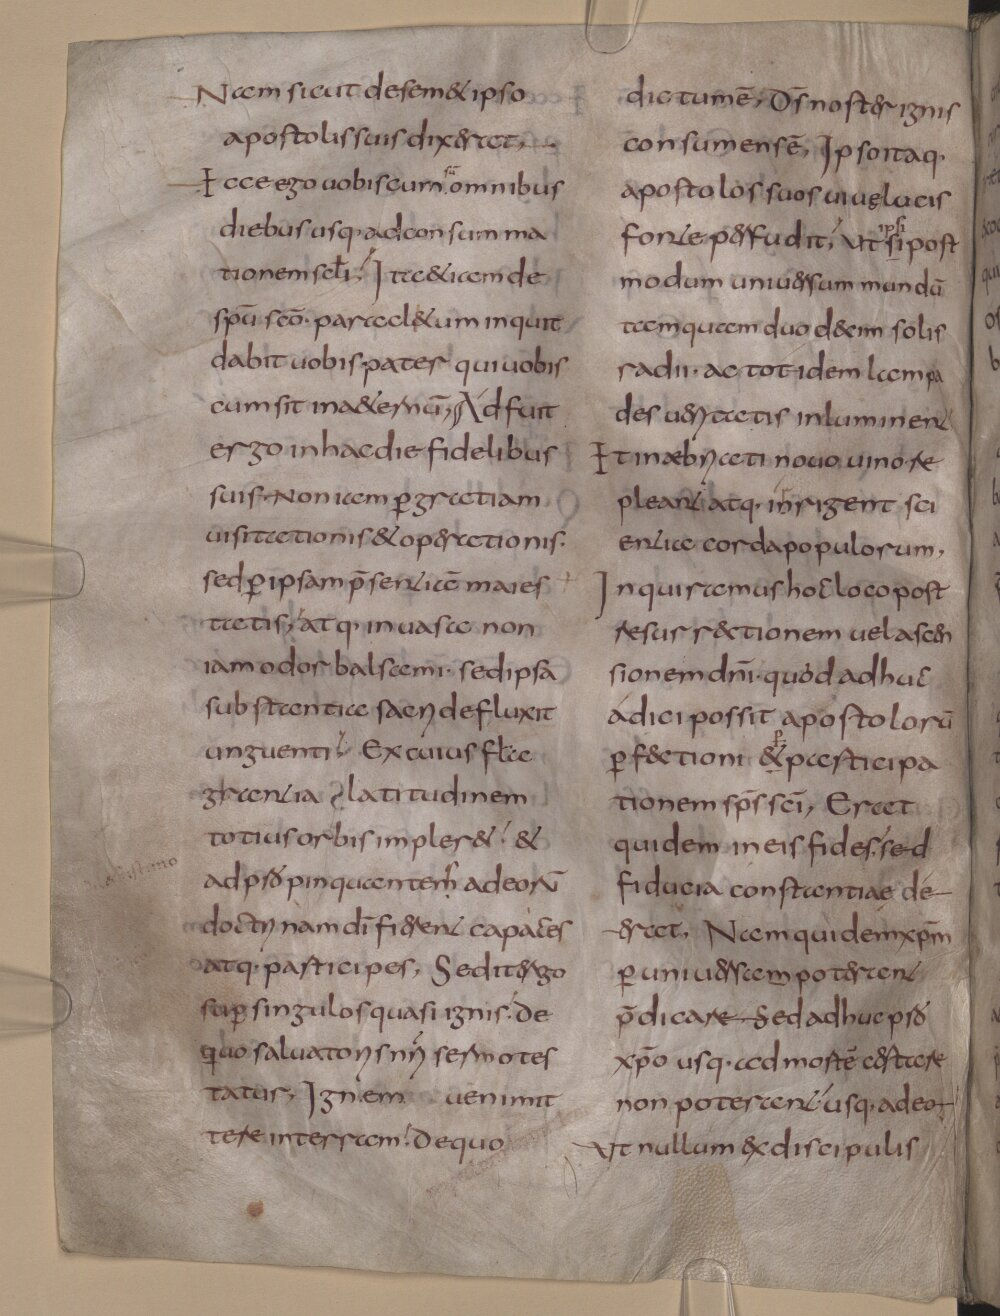 Nam sicut de sem& ipso
apostolis suis dixerat,
Ecce ego uobiscum sū omnibus
diebus usq· ad consumma
tionem scłi, Ita & iam de
spū scō· paracl&um inquit
dabit uobis pater qui uobis
cum sit in a&ernū, Adfuit
ergo in hac die fidelibus
suis· Non iam p̱ gratiam
uisitationis & operationis·
sed p̱ ipsam p̄sentiā maies
tatis, atq· in uasa non
iam odor balsami· sed ipsa
substantia sacri defluxit
unguenti Ex cuius fla
grantia latitudinem
totius orbis impler&· &
ad p̱rꝍ pinquantem adeorū
doctrinam dī fierent capaces
atq· participes, Sedit ergo
sup̱ singulos quasi ignis· de
quo saluatoris nri sermo tes
tatur, Ignem ueni mit
tere in terram· De quo
dictum ē, Ds̄ noster ignis
consumens ē, Ipso itaq·
apostolos suos uiuę lucis
fonte perfudit, Ut ipsi post
modum uniuersum mundū
tamquam duodecim solis
radii· ac totidem lampa
des ueritatis inluminent
Et inaebriati nouo uino re
pleant atq· inrigent sci
entia corda populorum,
Inquiramus hoc loco post
resurrectionem uel ascen
sionem dnī· quod adhuc
adici possit apostolorū
p̱fectioni & praesticipa
tionem sps̄ scī, Erat
quidem in eis fides· sed
fiducia constantiae de
erat, Nam quidem xp̄m
p̱ uniuersam poterant
p̄dicare Sed adhuc p̱rꝍ
xp̄o usq· ad mortē certare
non poterant usq· adeo
Ut nullum ex discipulis